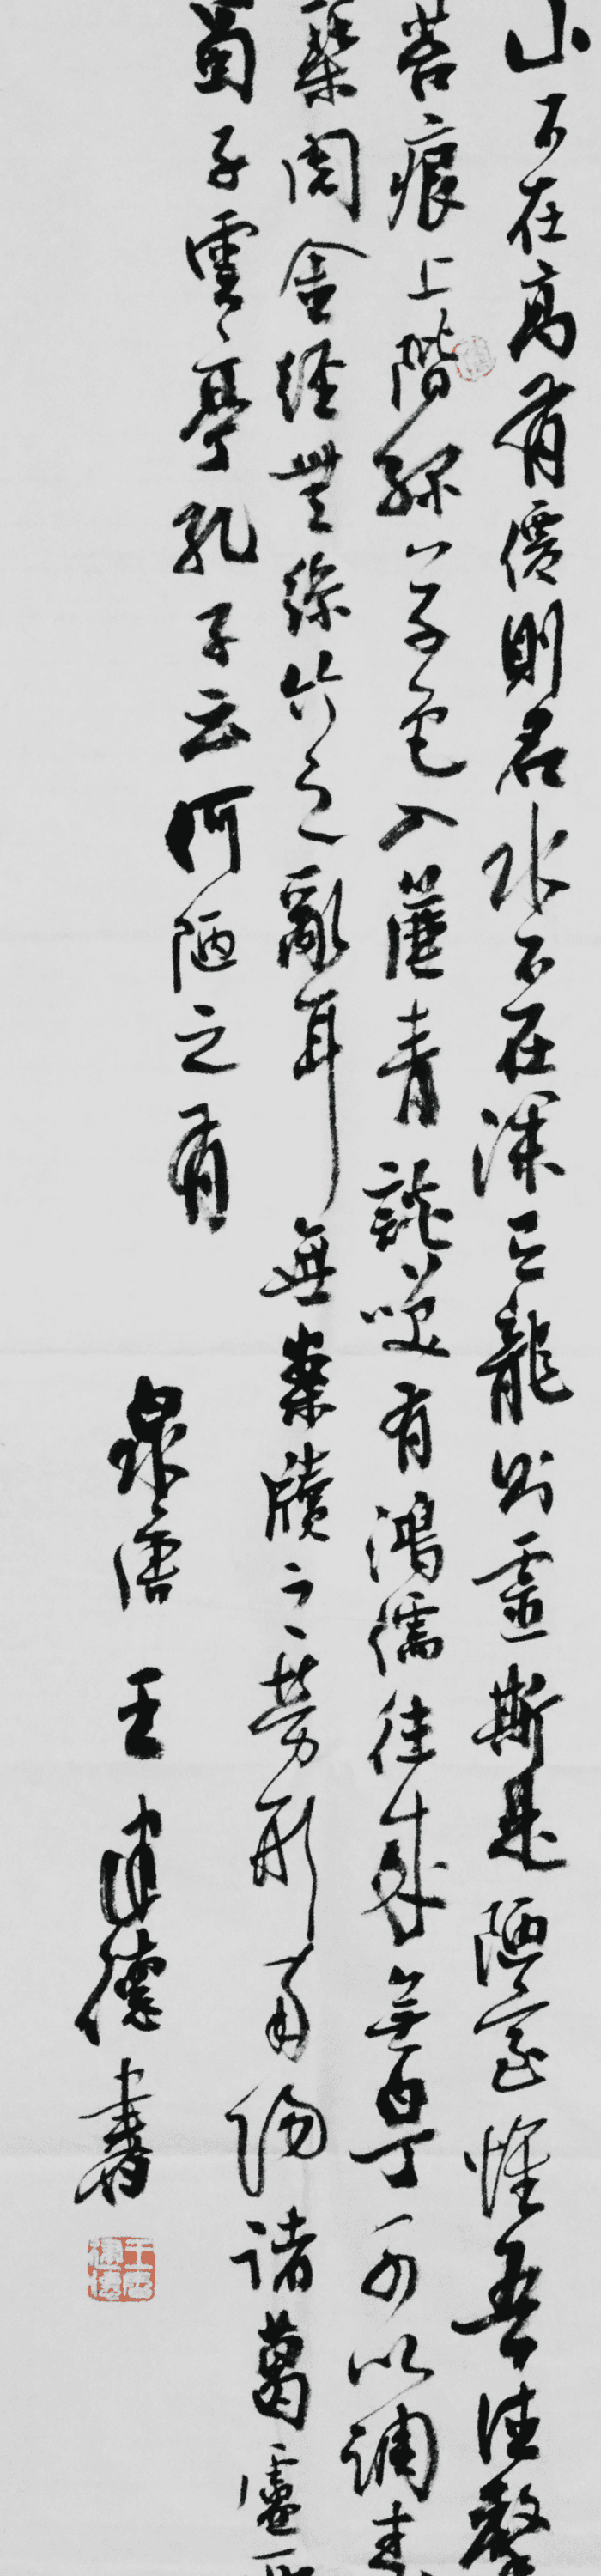 山不在高有僊則名水不在深有龍則靈斯是陋室惟吾德馨
苔痕上階綠草色入簾青談笑有鴻儒往來無白丁可以調素
琴閱金經無絲竹之亂耳無案牘之勞形南陽諸葛廬西
蜀子雲亭孔子云何陋之有
泉唐 王建德書